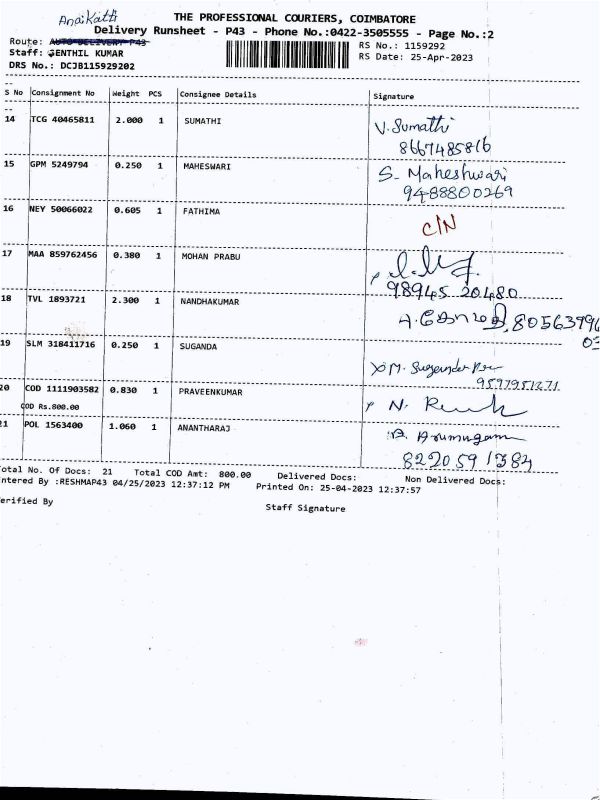 Anaikatti
THE PROFESSIONAL COURIERS, COIMBATORE
Delivery Runsheet - P43 - Phone No.:0422-3505555 - Page No.:2
Route: AUTO DELIVERY P43
RS No.: 1159292
Staff: SENTHIL KUMAR
RS Date: 25-Apr-2023
DRS No.: DCJB115929202
S No Consignment No Weight PCS Consignee Details Signature
14 TCG 40465811 2.000 1 SUMATHI V. Sumathi
8667485816
15 GPM 5249794 0.250 1 MAHESWARI S. Maheshwari
9488800269
16 NEY 50066022 0.605 1 FATHIMA C/N
17 MAA 859762456 0.380 1 MOHAN PRABU
98945 20480
18 TVL 1893721 2.300 1 NANDHAKUMAR
19 SLM 318411716 0.250 1 SUGANDA
9597951271
20 COD 1111903582 0.830 1 PRAVEENKUMAR
COD Rs.800.00
21 POL 1563400 1.060 1 ANANTHARAJ Arumugam
8220591384
Total No. Of Docs: 21 Total COD Amt: 800.00 Delivered Docs: Non Delivered Docs:
ntered By :RESHMAP43 04/25/2023 12:37:12 PM Printed On: 25-04-2023 12:37:57
erified By Staff Signature